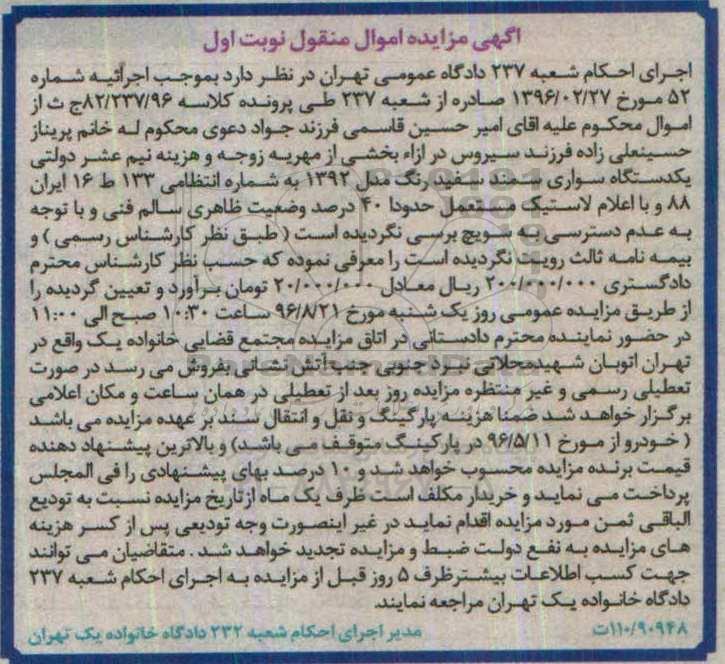 آگهی مزایده اموال منقول نوبت اول
اجرای احکام شعبه ۲۳۷ دادگاه عمومی تهران در نظر دارد بموجب اجرائیه شماره
۵۲ مورخ ۱۳۹۶/۰۲/۲۷ صادره از شعبه ۲۳۷ طی پرونده کلاسه ۸۲/۲۳۷/۹۶ج ث از
اموال محکوم علیه اقای امیر حسین قاسمی فرزند جواد دعوی محکوم له خانم پریناز
حسینعلی زاده فرزند سیروس در ازاء بخشی از مهریه زوجه و هزینه نیم عشر دولتی
یکدستگاه سواری سمند سفید رنگ مدل ۱۳۹۲ به شماره انتظامی ۱۳۳ ط ۱۶ ایران
۸۸ و با اعلام لاستیک مستعمل حدودا ۴۰ درصد وضعیت ظاهری سالم فنی و با توجه
به عدم دسترسی به سویچ برسی نگردیده است ( طبق نظر کارشناس رسمی ) و
بیمه نامه ثالث رویت نگردیده است را معرفی نموده که حسب نظر کارشناس محترم
دادگستری ۲۰۰/۰۰۰/۰۰۰ ریال معادل ۲۰/۰۰۰/۰۰۰ تومان برآورد و تعیین گردیده را
از طریق مزایده عمومی روز یک شنبه مورخ ۹۶/۸/۲۱ ساعت ۱۰:۳۰ صبح الی ۱۱:۰۰
در حضور نماینده محترم دادستانی در اتاق مزایده مجتمع قضایی خانواده یک واقع در
تهران اتوبان شهیدمحلاتی نبرد جنوبی جنب آتش نشانی بفروش می رسد در صورت
تعطیلی رسمی و غیر منتظره مزایده روز بعد از تعطیلی در همان ساعت و مکان اعلامی
برگزار خواهد شد ضمنا هزینه پارگینگ و نقل و انتقال سند بر عهده مزایده می باشد
( خودرو از مورخ ۹۶/۵/۱۱ در پارکینگ متوقف می باشد) و بالاترین پیشنهاد دهنده
قیمت برنده مزایده محسوب خواهد شد و ۱۰ درصد بهای پیشنهادی را فی المجلس
پرداخت می نماید و خریدار مکلف است ظرف یک ماه ازتاریخ مزایده نسبت به تودیع
الباقی ثمن مورد مزایده اقدام نماید در غیر اینصورت وجه تودیعی پس از کسر هزینه
های مزایده به نفع دولت ضبط و مزایده تجدید خواهد شد . متقاضیان می توانند
جهت کسب اطلاعات بیشترظرف ۵ روز قبل از مزایده به اجرای احکام شعبه ۲۳۷
دادگاه خانواده یک تهران مراجعه نمایند.
۱۱۰/۹۰۹۴۸ت
مدیر اجرای احکام شعبه ۲۳۲ دادگاه خانواده یک تهران